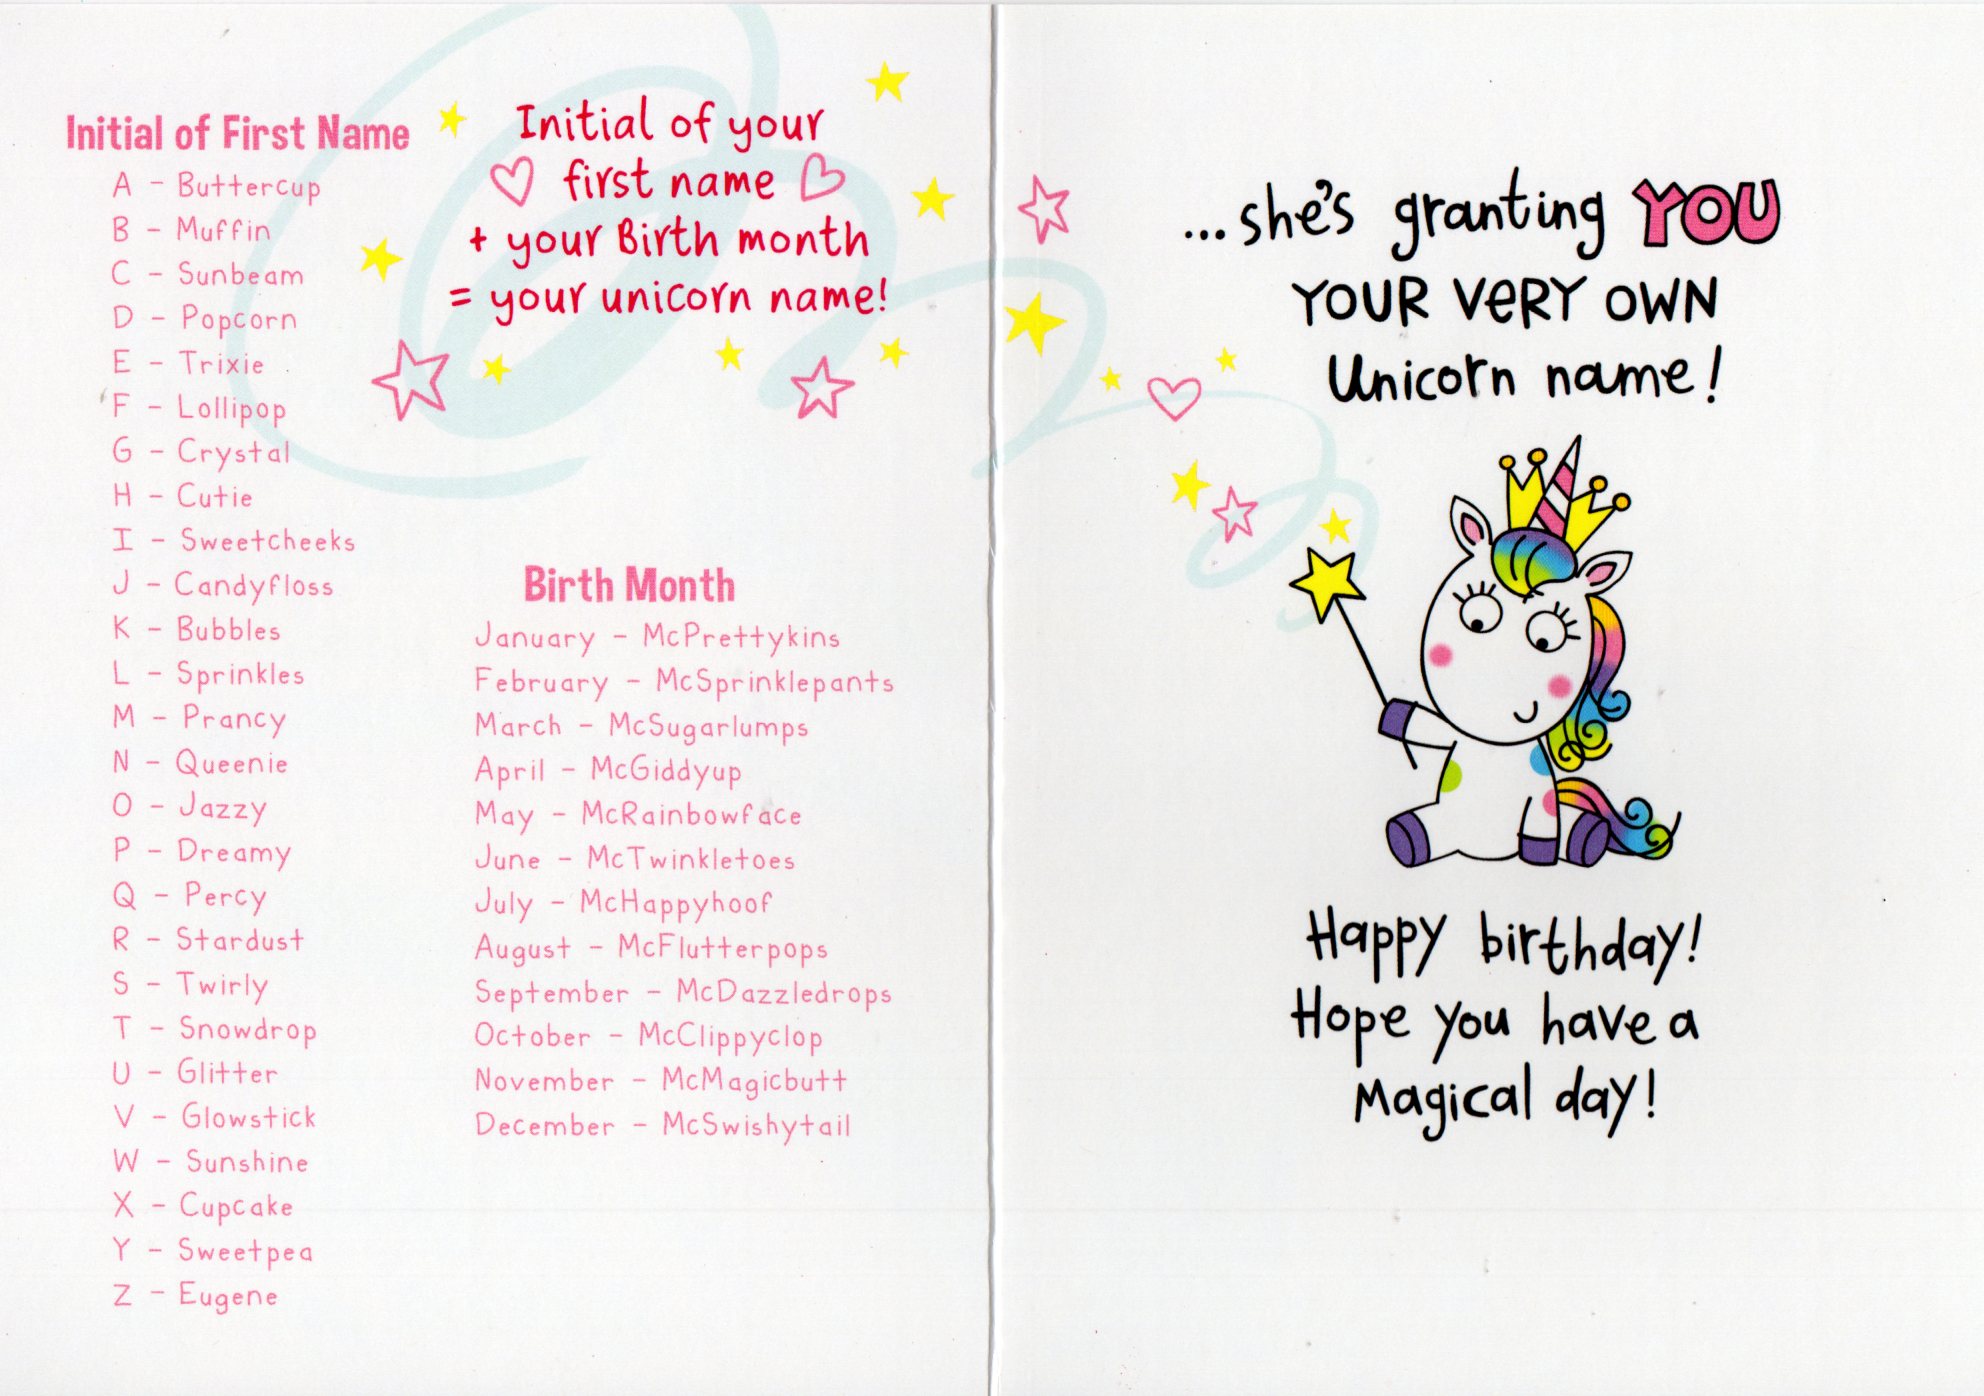 Initial of First Name
A - Buttercup
B - Muffin
C - Sunbeam
D - Popcorn
E - Trixie
F - Lollipop
G - Crystal
H - Cutie
I - Sweetcheeks
J - Candyfloss
K - Bubbles
L - Sprinkles
M - Prancy
N - Queenie
O - Jazzy
P - Dreamy
Q - Percy
R - Stardust
S - Twirly
T - Snowdrop
U - Glitter
V - Glowstick
W - Sunshine
X - Cupcake
Y - Sweetpea
Z - Eugene
Initial of your
first name
+ your Birth month
= your unicorn name!
Birth Month
January - McPrettykins
February - McSprinklepants
March - McSugarlumps
April - McGiddyup
May - McRainbowface
June - McTwinkletoes
July - McHappyhoof
August - McFlutterpops
September - McDazzledrops
October - McClippyclop
November - McMagicbutt
December - McSwishytail
...she's granting YOU
YOUR VERY OWN
Unicorn name!
Happy birthday!
Hope you have a
Magical day!